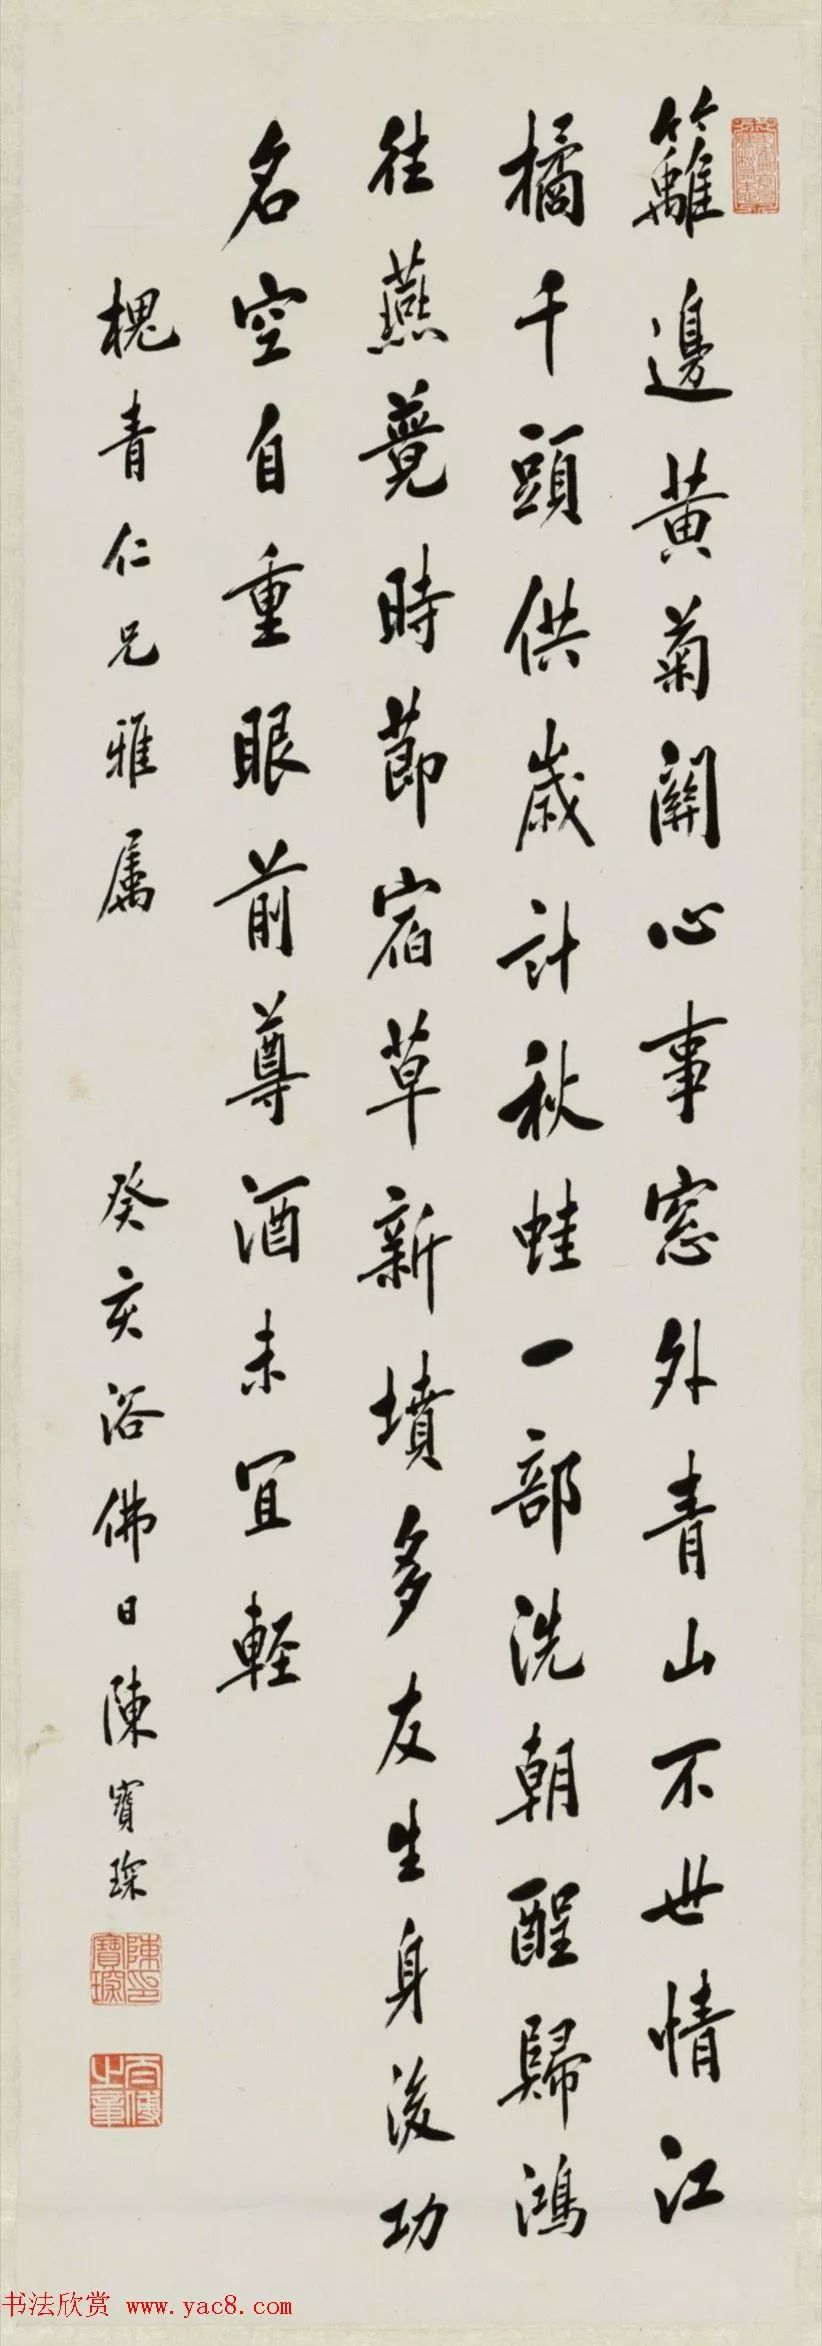 籬邊黃菊關心事窓外青山不世情江
橘千頭供歲計秋蛙一部洗朝酲歸鴻
往燕競時節宿草新墳多友生身後功
名空自重眼前尊酒未宜輕
槐青仁兄雅屬
癸亥浴佛日陳寶琛
陳寶琛印
太傅之章
书法欣赏 www.yac8.com